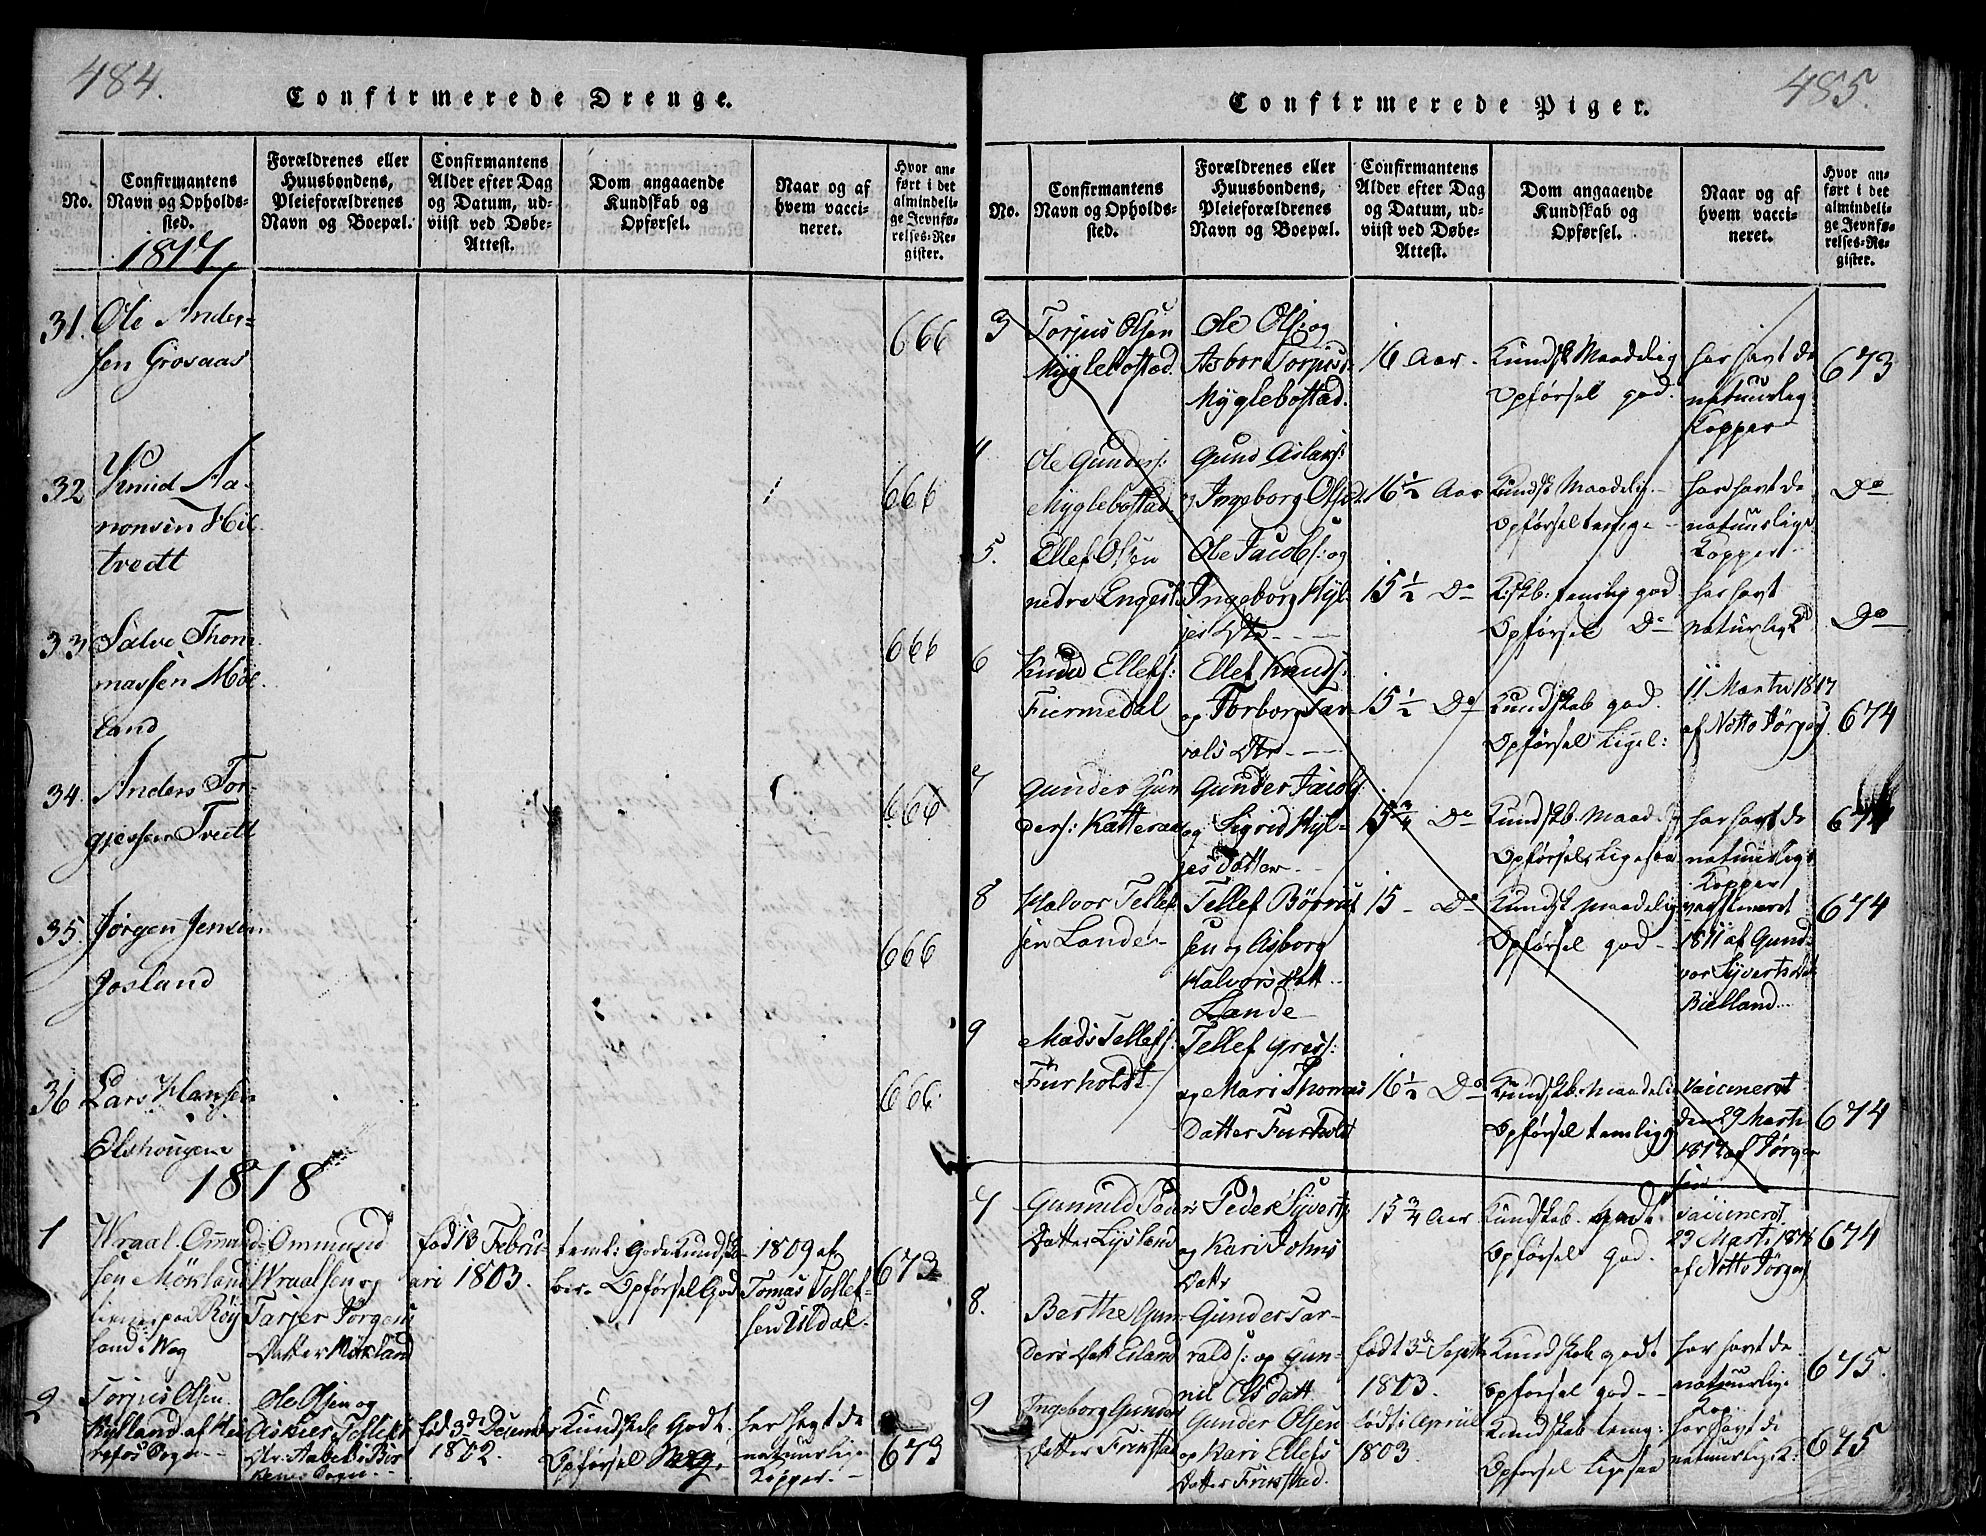 484.
Confirmerede Drenge.
No.
Confirmantens
Navn og Opholds-
sted.
Forældrenes eller
Huusbondens,
Pleieforældrenes
Navn og Boepæl.
Confirmantens
Alder efter Dag
og Datum, ud-
viist ved Døbe-
Attest.
Dom angaaende
Kundskab og
Opførsel.
Naar og af
hvem vacci-
neret.
Hvor an-
ført i det
almindeli-
ge Jevnfø-
relses-Re-
gister.
1817
31. Ole Ander-
sen Grosaas
666
32 Knud Aa-
nonsen Hil-
tvedt
666
33 Salve Thom-
massen Møl-
land
666
34. Anders Tor-
gjersen Tvedt
666
35. Jørgen Jensen
Josland
666
36 Lars Hansen
666
1818
1 Wraal Ommund-
sen Mørland
paa Røy-
land i Weg
Ommund
Wraalsen og
Tarjer Jørgens
Datter Mørland
fød 13 Febru-
ari 1803.
teml: Gode Kundska-
ber. Opførsel God
1809 af
Tomas Tellef-
sen Uldal.
673
2 Torjus Olsen
af He-
refos Sogn
Ole Olsen og
Tellefs
Dtr. Aabel i Bir-
kenes Sogn.
fød 3de Decembr
1802
Kundskab Godt.
Opførsel
har hagt de
naturlige
Kopper.
673
485.
Confirmerede Piger.
No.
Confirmantens
Navn og Opholds-
sted.
Forældrenes eller
Huusbondens,
Pleieforældrenes
Navn og Boepæl.
Confirmantens
Alder efter Dag
og Datum, ud-
viist ved Døbe-
Attest.
Dom angaaende
Kundskab og
Opførsel.
Naar og af
hvem vacci-
neret.
Hvor an-
ført i det
almindeli-
ge Jevnfø-
relses-Re-
gister.
3 Torjus Olsen
Myglebostad
Ole Ols: og
Asbor Torjusd
Myglebostad.
16 Aar.
Kundsk Maadelig
Opførsel god.
har havt de
natuurlig
Kopper
673
4 Ole Gunders:
Myglebostad
Gund Aslaks:
og Ingeborg Olsdt
16½ Aar
Kundsk Maadelig
Opførsel temlige
har havt de
natuurlige
Kopper.
Do
5. Ellef Olsen
nedre Engest
Ole Jacobs: og
Ingeborg Kyl-
jes Dtr
15½ Do
Kdskb: temlig god
Opførsel Do
har havt
naturlig
Do
6 Knud Ellefs:
Fiermedal
Ellef Knuds:
og Torborg Tar-
vals Dtr
15½ Do
Kundskab god.
Opførsel Ligel:
11 Marti 1817
af Notto Jørgens
674
7 Gunder Gun
ders: Katteraas
Gunder Jacobs:
og Sigrid Kyl-
jes Datter
15¾ Do
Kundskb. Maad
Opførsel Ligesaa
har havt de
natuurlige
Kopper
674
8 Halvor Tellef
sen Lande
Tellef Børuls
sen og Asborg
Halvors Datt
Lande
15 Do
Kundsk Maadelig
Opførsel god
vaccineret
1811 af Gund-
vor Syverts Dat
Bielland
674
9 Mads Tellefs:
Furholdt
Tellef Gres:
og Mari Thomas
Datter Furholdt
16½ Do
Kundskb: Maadeli
Opførsel temligg
Vaccineret
den 29 Marti
1817 af Jørgen
sen
674
7 Gunnild Peders
Datter Lysland
Peder Syverts:
og Kari Johns
Datr
15¾ Aar
Kundskab godt
Opførsel God.
Vaccineret
23 Marti
af Notto Jørgens
674
8. Berthe Gun-
ders Datt Eiland
Gunder Tar-
valds: og Gun-
nil Ols datt
født 3de Septr
1803.
Kundskab godt
Opførsel god
har havt de
natuurlige
Kop.
675.
9 Ingeborg Gunders
Datter Frikstad
Gunder Olsen
og Kari Ellefs
Datter Frikstad.
født i April
1803
Kundskab temg:
Opførsel ligesaa
har havt de
natuurlige K:
675